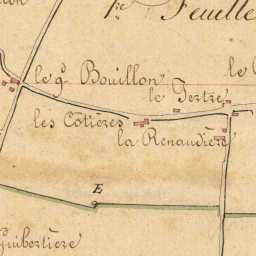 1re Feuille
le gd Bouillon
le
le Tertre
les Côtières
la Renaudière
E
Guibertière